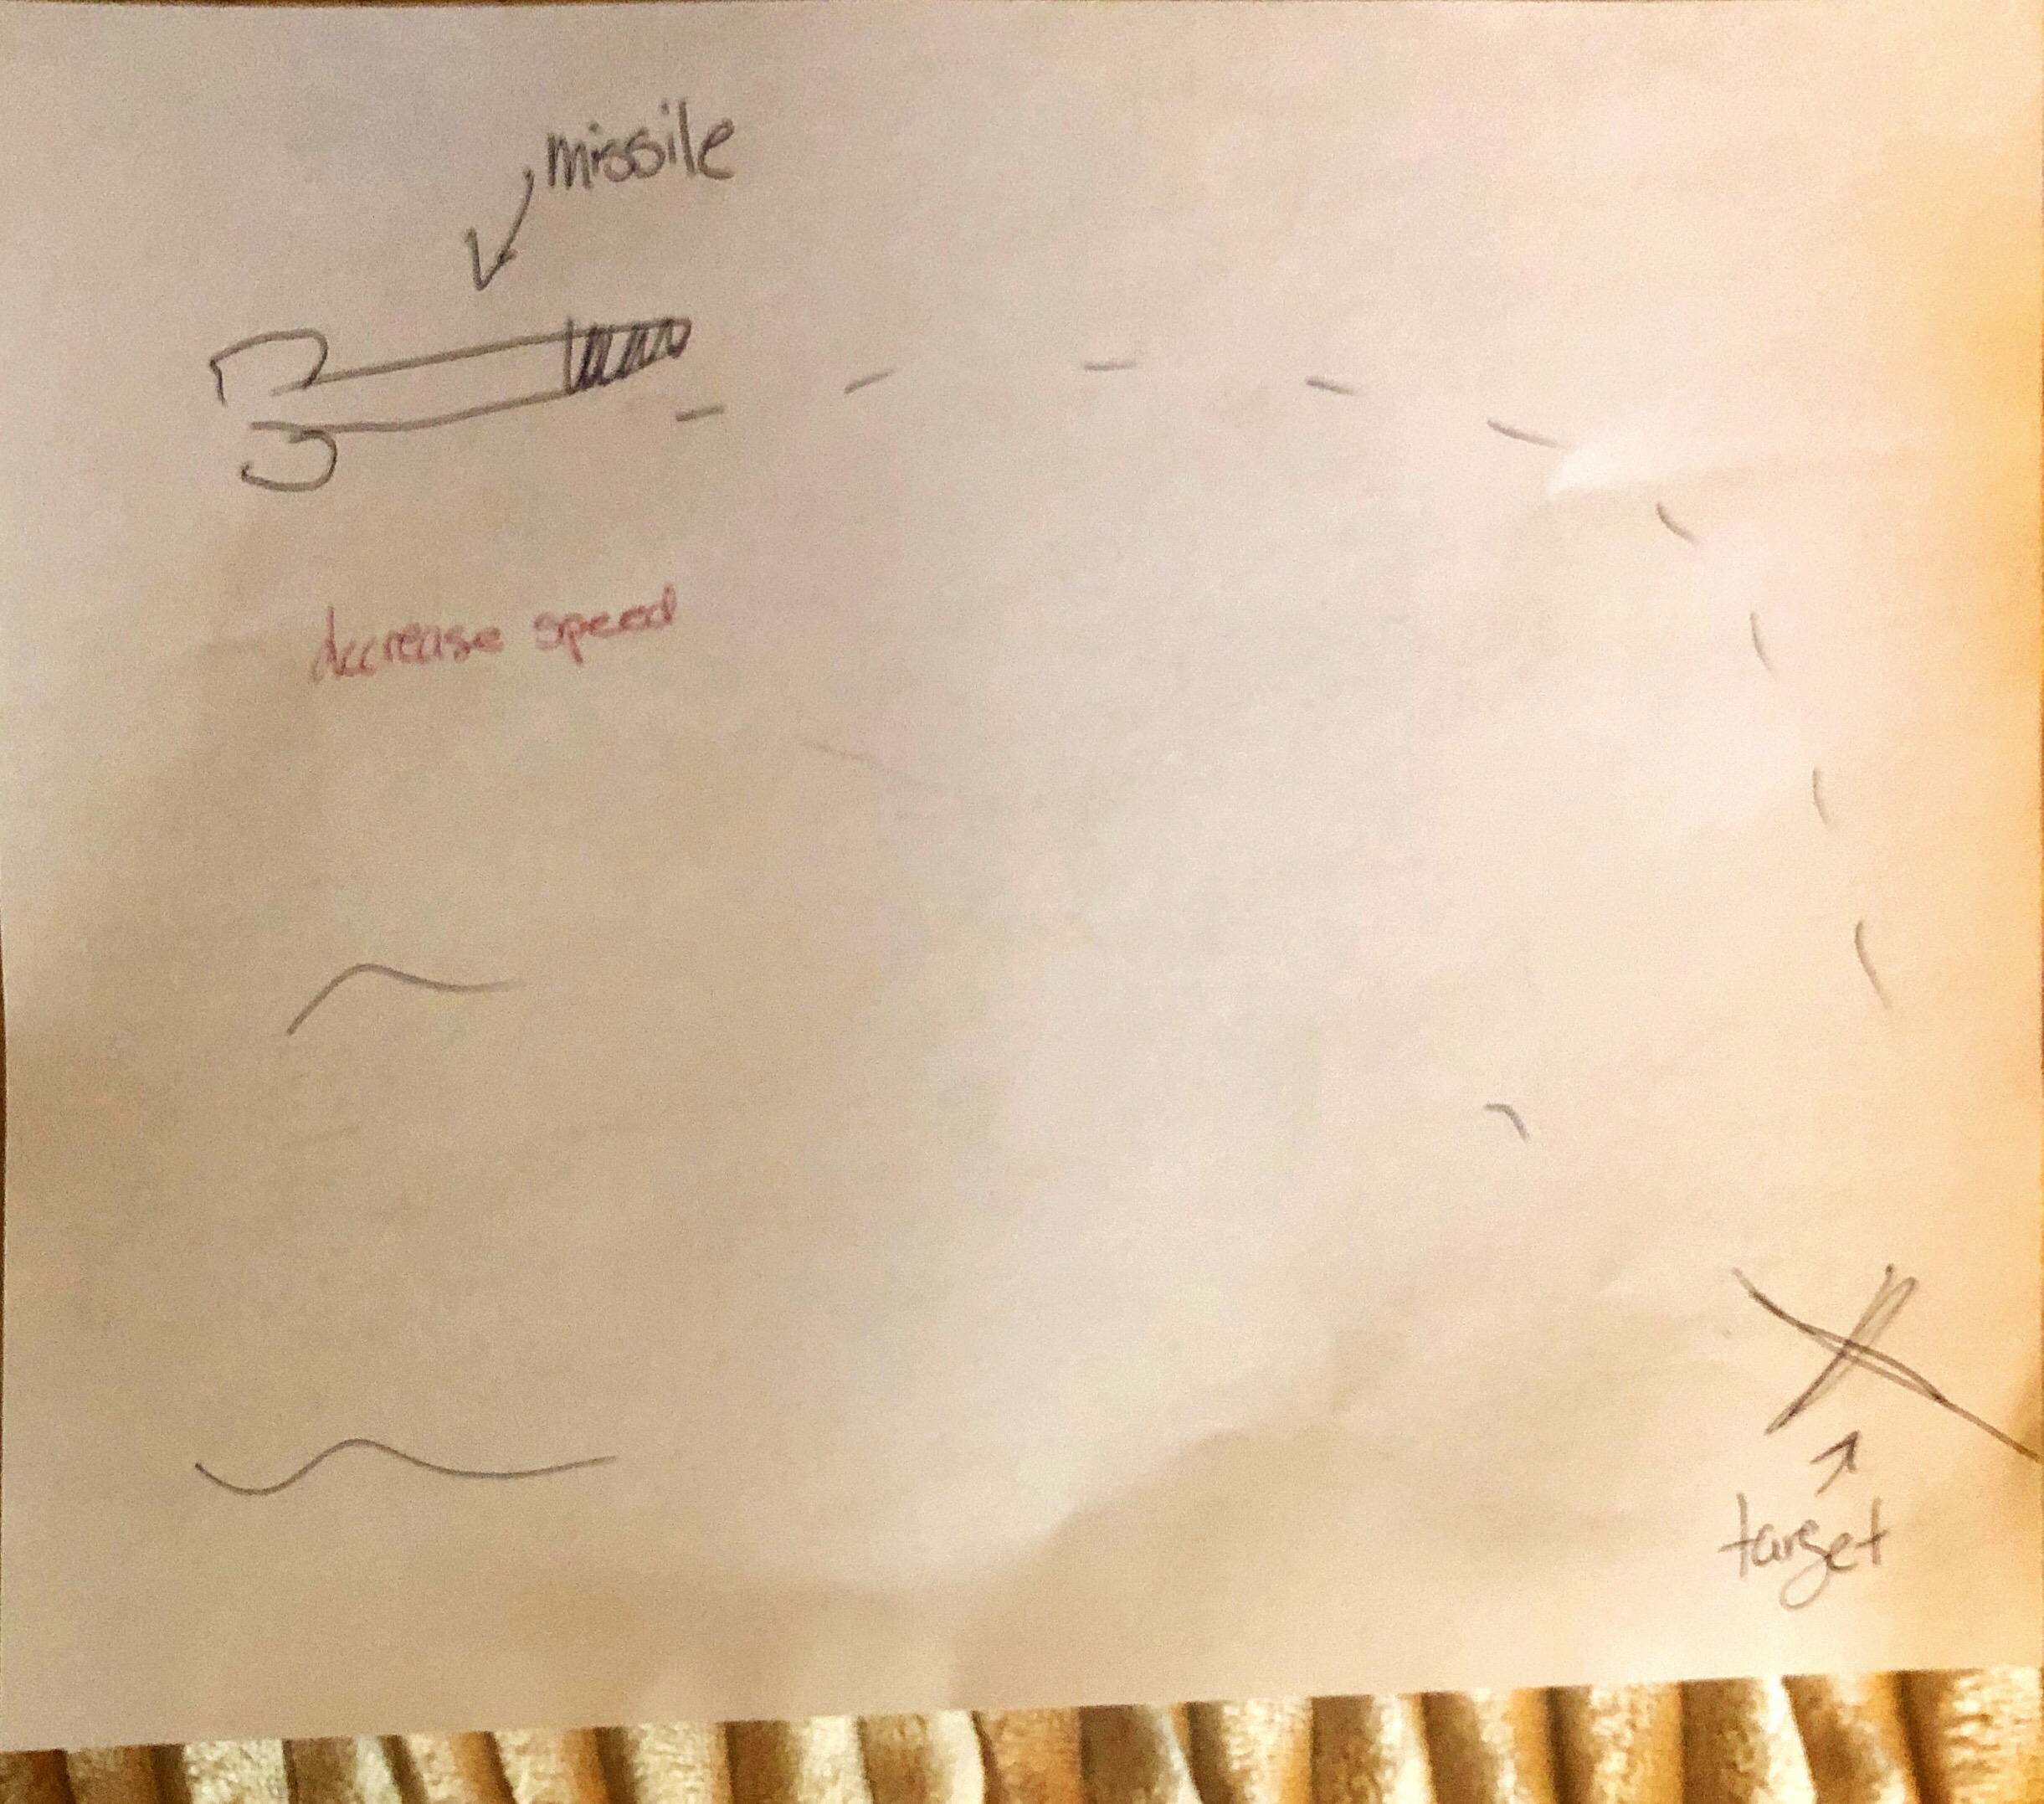 missile
decrease speed
target